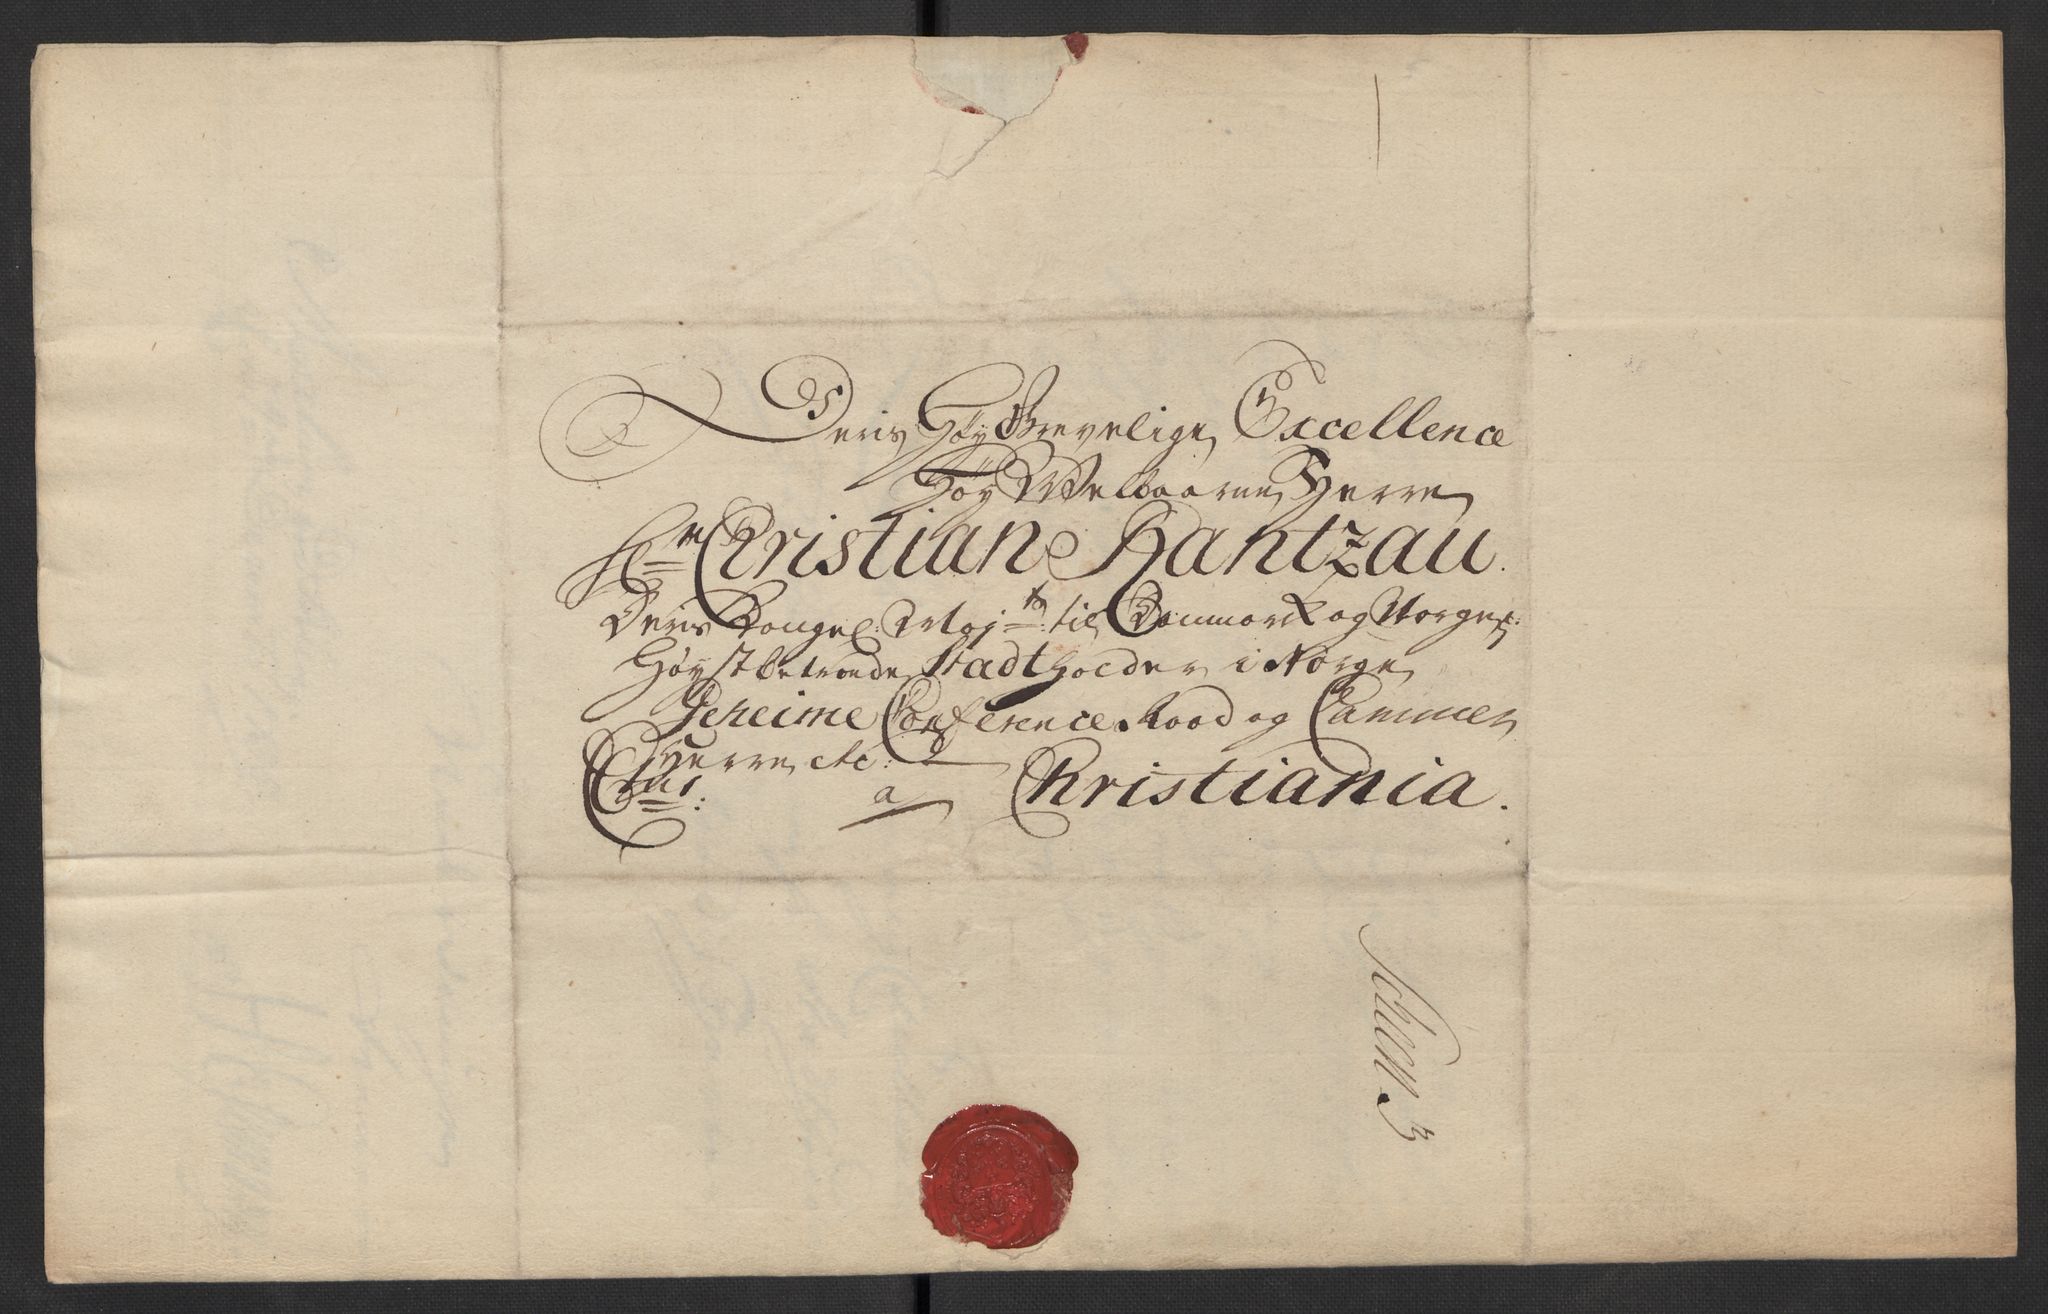 Deris Høy Grevelige Excellence
Høy Welbaarne Herre
Hr Christian Rantzau.
Deris Kongel: Maj:ts til Danmark og Norge
Høystbetroede Stadtholder i Norge
Geheime Conference Raad og Cammer
Herre etc:
a Christiania.